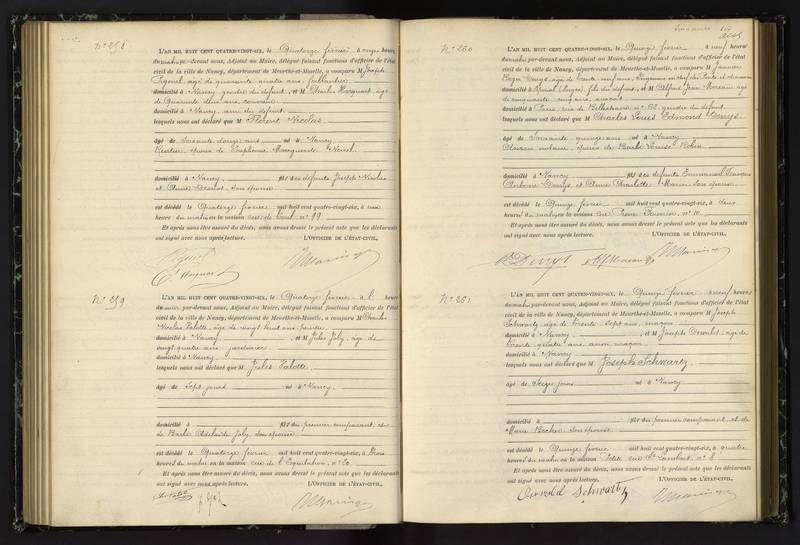 N° 258
L'AN MIL HUIT CENT QUATRE-VINGT-SIX, le Quatorze février à onze heures
du matin, par-devant nous, Adjoint au Maire, délégué faisant fonctions d'officier de l'état
civil de la ville de Nancy, département de Meurthe-et-Moselle, a comparu M Joseph
âgé de quarante quatre ans,
domicilié à Nancy, gendre du défunt, et M Charles Hocquart, âgé
de Quarante deux ans,
domicilié à Nancy, ami du défunt
lesquels nous ont déclaré que M Florent Nicolas
âgé de Soixante douze ans né à Nancy
Rentier, époux de Euphrosine Marguerite
domicilié à Nancy, fils des défunts Joseph Nicolas
et Anne son épouse
est décédé le Quatorze février mil huit cent quatre-vingt-six, à
heure du matin en la maison rue de Toul n° 99
Et après nous être assuré du décès, nous avons dressé le présent acte que les déclarants
ont signé avec nous après lecture. L'OFFICIER DE L'ÉTAT-CIVIL,
N° 259
L'AN MIL HUIT CENT QUATRE-VINGT-SIX, le Quatorze février à heure
du soir par-devant nous, Adjoint au Maire, délégué faisant fonctions d'officier de l'état
civil de la ville de Nancy, département de Meurthe-et-Moselle, a comparu M Charles
Nicolas Valotte, âgé de vingt huit ans, peintre
domicilié à Nancy, et M Jules Joly, âgé de
vingt quatre ans, jardinier
domicilié à Nancy
lesquels nous ont déclaré que M Jules Valotte
âgé de Sept jours né à Nancy,
domicilié à fils du premier comparant et
de Barbe Adélaïde Joly, son épouse
est décédé le Quatorze février mil huit cent quatre-vingt-six, à trois
heures du matin en la maison rue de l'Equitation n° 20
Et après nous être assuré du décès, nous avons dressé le présent acte que les déclarants
ont signé avec nous après lecture. L'OFFICIER DE L'ÉTAT-CIVIL,
N° 260
L'AN MIL HUIT CENT QUATRE-VINGT-SIX, le Quinze février à neuf heures
du matin par-devant nous, Adjoint au Maire, délégué faisant fonctions d'officier de l'état
civil de la ville de Nancy, département de Meurthe-et-Moselle, a comparu M
Denys, âgé de trente neuf ans, Ingénieur en chef des Ponts et chaussées
domicilié à Epinal (Vosges), fils du défunt, et M Alfred Jean Moreau, âgé
de cinquante cinq ans, avocat
domicilié à Paris, rue de n° 52, gendre du défunt
lesquels nous ont déclaré que M Charles Louis Edmond Denys
âgé de Soixante quinze ans né à Nancy
Ancien notaire, époux de Barbe Louise
domicilié à Nancy fils des défunts Emmanuel François
Antoine Denys et Anne Charlotte son épouse
est décédé le Quinze février mil huit cent quatre-vingt-six, à deux
heures du matin en la maison rue Pierre Fourier, n° 10
Et après nous être assuré du décès, nous avons dressé le présent acte que les déclarants
ont signé avec nous après lecture. L'OFFICIER DE L'ÉTAT-CIVIL,
N° 261
L'AN MIL HUIT CENT QUATRE-VINGT-SIX, le Quinze février à neuf heures
du matin, par-devant nous, Adjoint au Maire, délégué faisant fonctions d'officier de l'état
civil de la ville de Nancy, département de Meurthe-et-Moselle, a comparu M Joseph
Schwartz, âgé de trente sept ans, maçon
domicilié à Nancy, et M Joseph Oswald, âgé de
trente quatre ans, aussi maçon
domicilié à Nancy
lesquels nous ont déclaré que M Joseph Schwartz
âgé de Seize jours né à Nancy
domicilié à fils du premier comparant, et de
Marie son épouse
est décédé le Quinze février mil huit cent quatre-vingt-six, à quatre
heures du matin en la maison Petite rue St Lambert, n° 8
Et après nous être assuré du décès, nous avons dressé le présent acte que les déclarants
ont signé avec nous après lecture. L'OFFICIER DE L'ÉTAT-CIVIL,
Oswald Schwartz